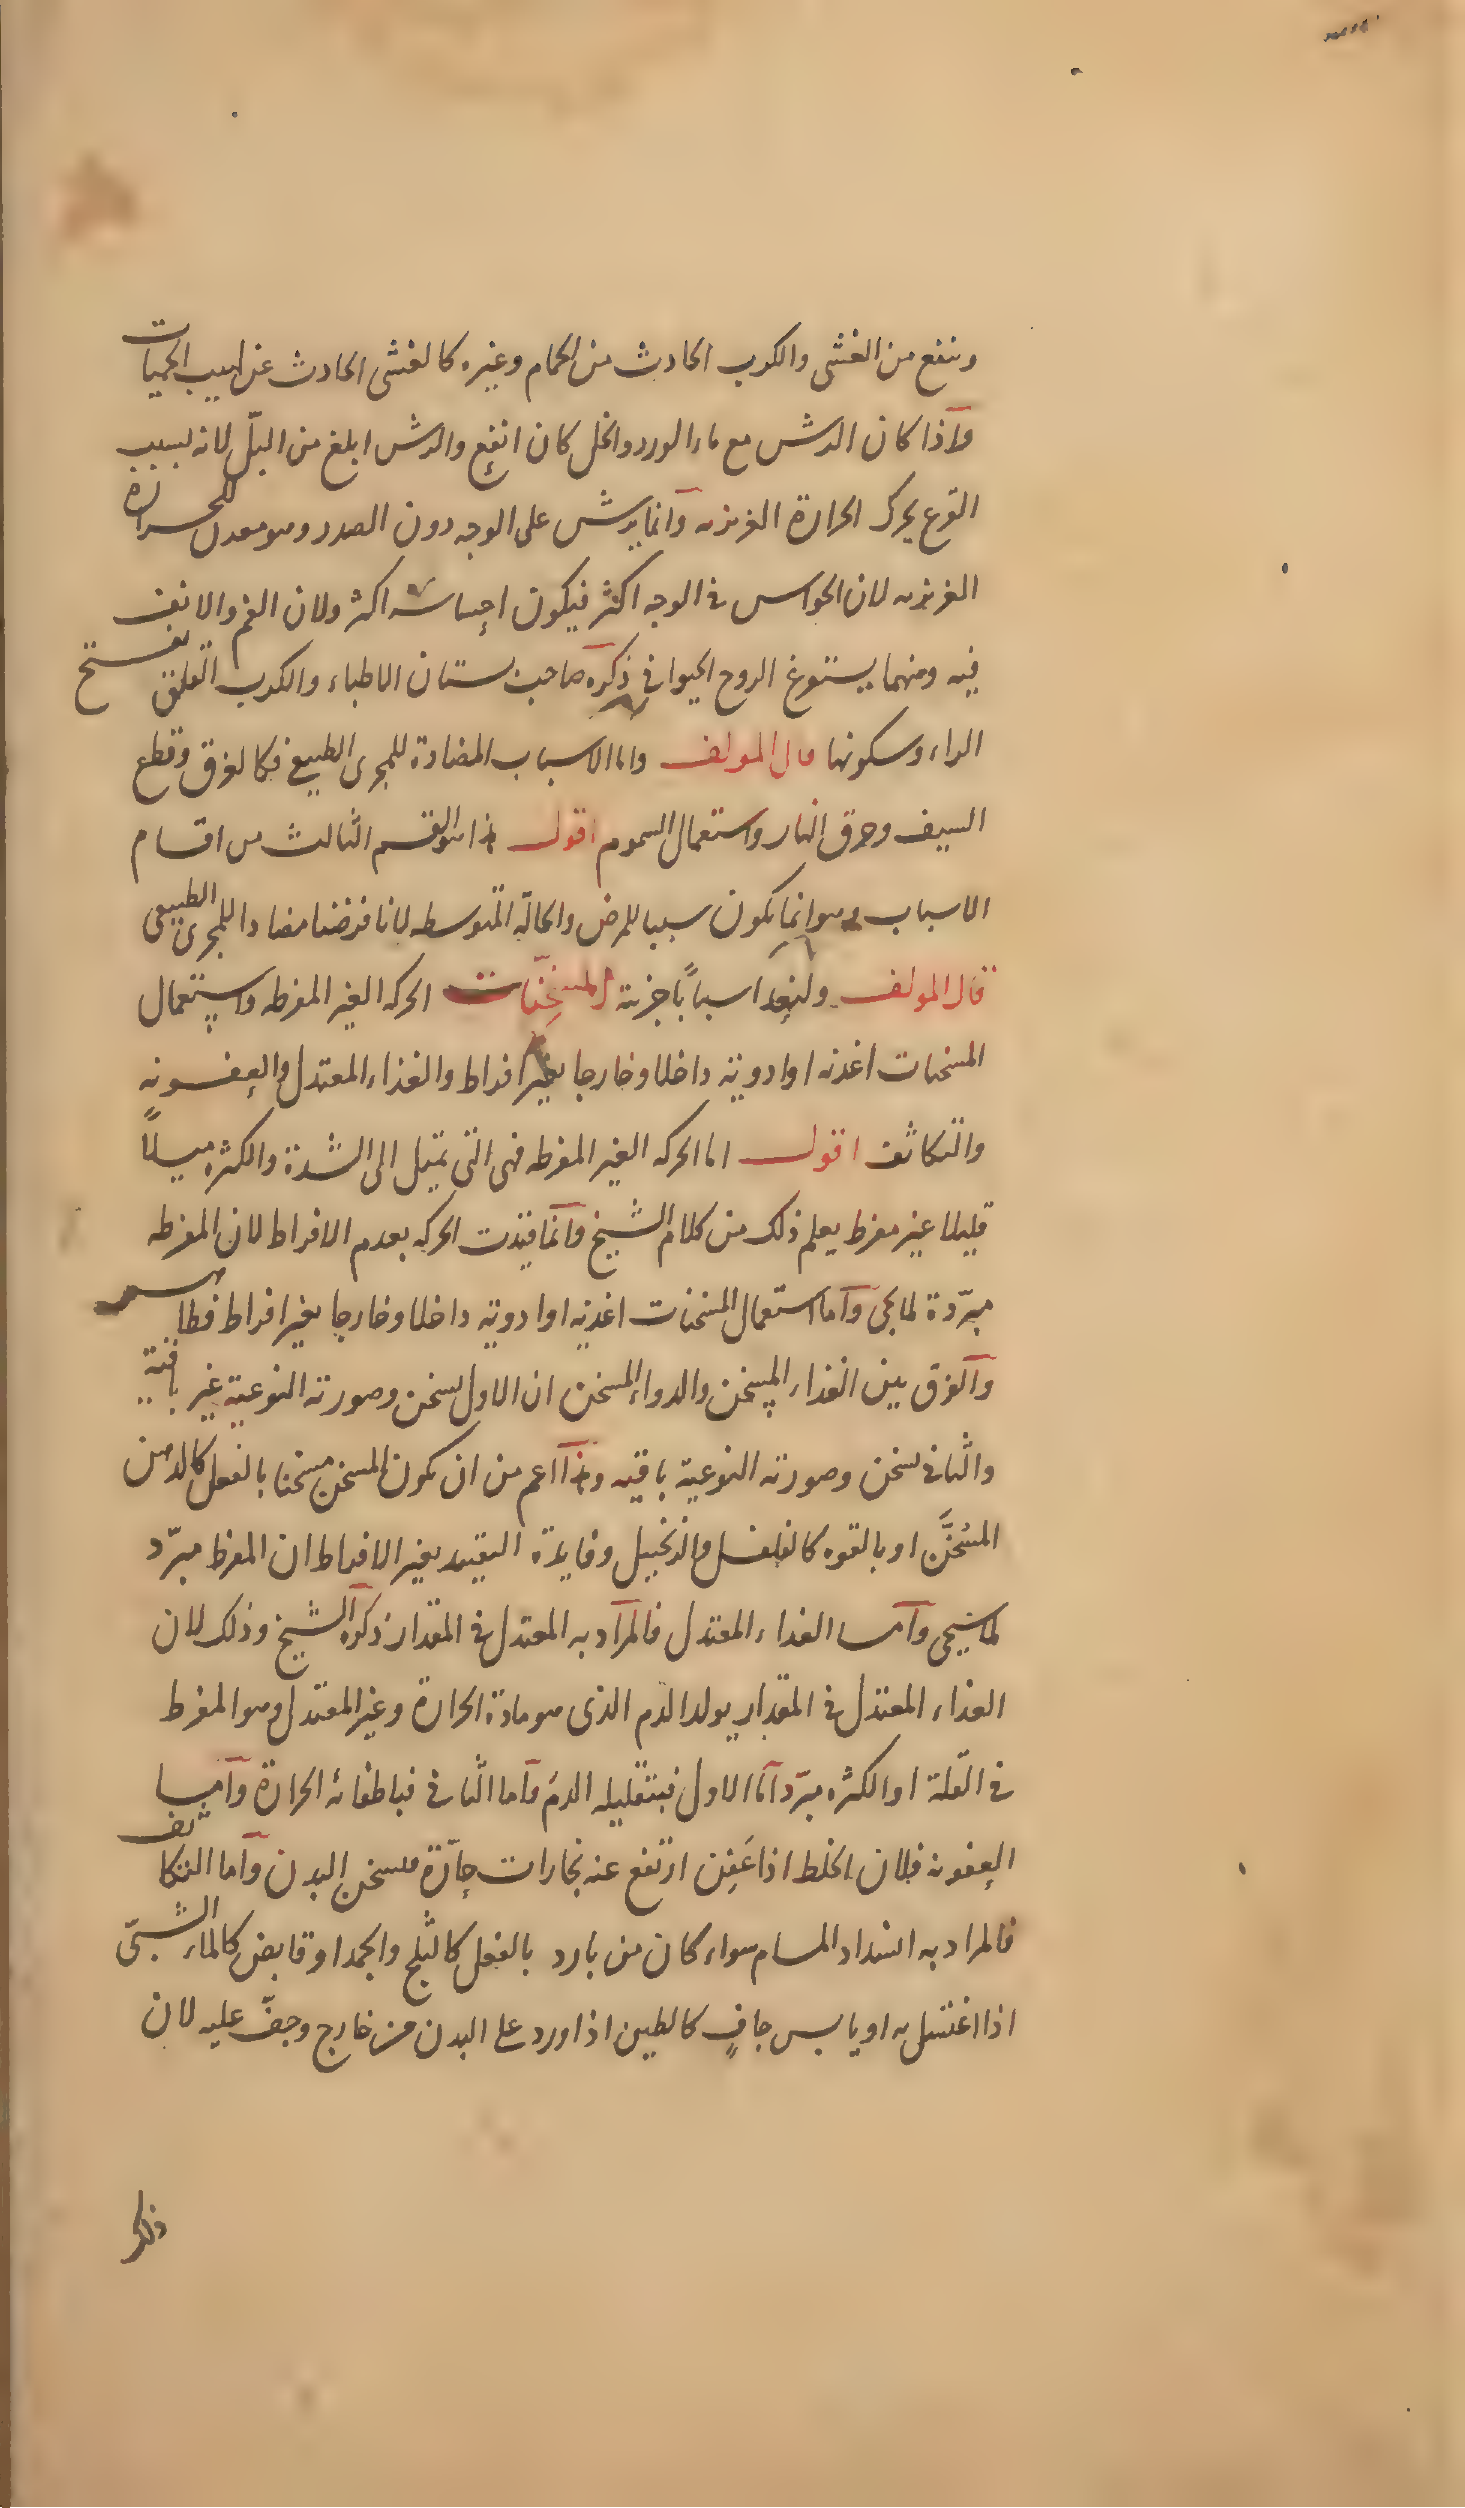 وينفع من الغشى والكرب الحادث من الحمام وغيره كالغشى الحادث عن لهيب الحميات
واذا كان الرش مع ماء الورد والخل كان انفع والرش ابلغ من البلّ لانه بسبب
القرع يحرك الحرارة الغريزيه وانما يرش على الوجه دون الصدر وهو معدل للحرارة
الغريزيه لان الحواس فى الوجه اكثر فيكون احساسه اكثر ولان الفم والانف
فيه ومنهما يستنوغ الروح الحيوانى ذكره صاحب بستان الاطباء والكرب القلق بفتح
الراء وسكونها قال المولف واما الاسباب المضادة للمجرى الطبيعى فكالغرق وقطع
السيف وحرق النار واستعمال السموم اقول هذا هو القسم الثالث من اقسام
الاسباب وهو انما يكون سببا للمرض والحالة المتوسطه لانا فرضنا مضادا للمجرى الطبيعى
قال المولف ولنعد اسباباً جزئية المسخّنات الحركه الغير المفرطه واستعمال
المسخنات اغذيه او ادوية داخلا وخارجا بغير افراط والغذاء المعتدل والعفونه
والتكاثف اقول اما الحركه الغير المفرطه فهى التى تميل الى الشدة والكثره ميلاً
قليلا غير مفرط يعلم ذلك من كلام الشيخ وانما قيّدت الحركه بعدم الافراط لان المفرطه
مبرّدة لما يجى واما استعمال المسخنات اغذيه او ادويه داخلا وخارجا بغير افراط فظاهر
والفرق بين الغذاء المسخن والدواء المسخن ان الاول يسخن وصورته النوعية غير باقية
والثانى يسخن وصورته النوعية باقيه وهذا اعم من ان يكون المسخن مسخنا بالفعل كالدهن
المسُخَّن او بالقوه كالفلفل والزنجبيل وفايدة التقييد بغير الافراط ان المفرط مبرّد
لما سيجى واما الغذاء المعتدل فالمراد به المعتدل فى المقدار ذكره الشيخ وذلك لان
الغذاء المعتدل فى المقدار يولد الدم الذى هو مادة الحرارة وغير المعتدل وهو المفرط
فى القلّة او الكثره مبرّد اما الاول فبتقليله الدم واما الثانى فباطفائه الحرارة واما
العفونه فلان الخلط اذا عَفِن ارتفع عنه بخارات حارّة فيسخن البدن واما التكاثف
فالمراد به انسداد المسام سواء كان من بارد بالفعل كالثلج والجمد او قابض كالماء الشبّى
اذا اغتسل به او يابس جافٍ كالطين اذا ورد على البدن من خارج وجفّ عليه لان
ذلك